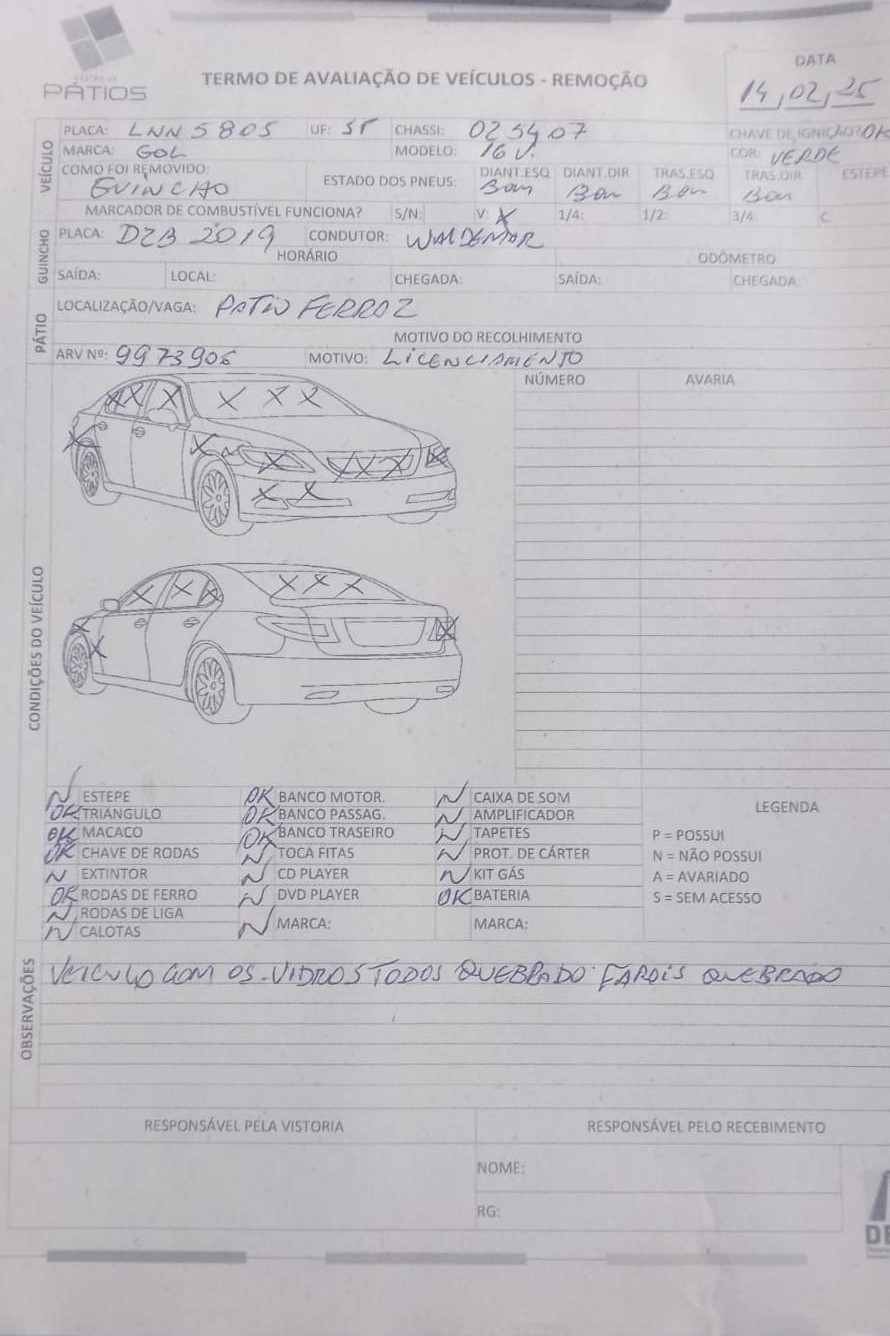 PÁTIOS
TERMO DE AVALIAÇÃO DE VEÍCULOS - REMOÇÃO
DATA
14/02/25
VEÍCULO
PLACA: LNN 5805 UF: SP CHASSI: 025407 CHAVE DE IGNIÇÃO? OK
MARCA: GOL MODELO: 16 V. COR: VERDE
COMO FOI REMOVIDO: GUINCHO ESTADO DOS PNEUS: DIANT.ESQ Bom DIANT.DIR Bom TRAS.ESQ Bom TRAS.DIR Bom ESTEPE
MARCADOR DE COMBUSTÍVEL FUNCIONA? S/N: V: X 1/4: 1/2: 3/4: C
GUINCHO
PLACA: DZB 2019 CONDUTOR: WALDEMAR
HORÁRIO ODÔMETRO
SAÍDA: LOCAL: CHEGADA: SAÍDA: CHEGADA:
PÁTIO
LOCALIZAÇÃO/VAGA: PATIO FERRAZ
MOTIVO DO RECOLHIMENTO
ARV Nº: 9973906 MOTIVO: LICENCIAMENTO
CONDIÇÕES DO VEÍCULO
NÚMERO AVARIA
N ESTEPE OK BANCO MOTOR. N CAIXA DE SOM LEGENDA
OK TRIANGULO OK BANCO PASSAG. N AMPLIFICADOR
OK MACACO OK BANCO TRASEIRO N TAPETES P = POSSUI
OK CHAVE DE RODAS N TOCA FITAS N PROT. DE CÁRTER N = NÃO POSSUI
N EXTINTOR N CD PLAYER N KIT GÁS A = AVARIADO
OK RODAS DE FERRO N DVD PLAYER OK BATERIA S = SEM ACESSO
N RODAS DE LIGA N MARCA: MARCA:
N CALOTAS
OBSERVAÇÕES
VEICULO COM OS VIDROS TODOS QUEBRADO FAROIS QUEBRADO
RESPONSÁVEL PELA VISTORIA RESPONSÁVEL PELO RECEBIMENTO
NOME:
RG: